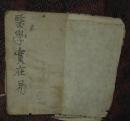 醫學實在易